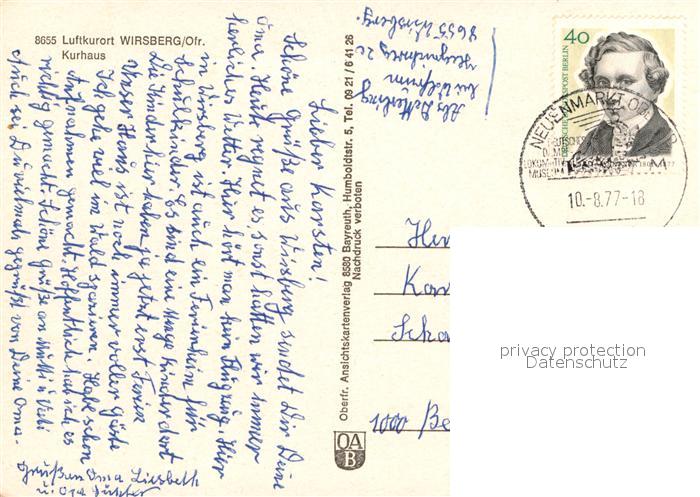 8655 Luftkurort WIRSBERG/Ofr.
Kurhaus
Lieber Karsten!
Schöne Grüße aus Wirsberg sendet Dir Deine
Oma. Heute regnet es, sonst hatten wir immer
herliches Wetter. Hier hört man kein Flugzeug. Hier
in Wirsberg ist auch ein Ferienheim für
Schulkinder. Es sind eine Menge Kinder dort
Die Kinder hier haben ja jetzt erst Ferien
Unser Haus ist noch immer voller Gäste
Ich gehe viel im Wald spazieren. Habe schon
Aufnahmen gemacht. Hoffentlich hab ich es
richtig gemacht. Schöne Grüße an Mutti u. Vati
Auch sei Du vielmals gegrüßt von Deine Oma.
Grüßen Oma Liesbeth
u. Opa
Oberfr. Ansichtskartenverlag 8580 Bayreuth, Humboldtstr. 5, Tel. 09 21 / 6 41 26
Nachdruck verboten
OA
B
8655 Wirsberg.
40
DEUTSCHE BUNDESPOST BERLIN
NEUENMARKT, OFR
DEUTSCHES
DAMPF
LOKOMOTIV
MUSEUM
10.-8.77-18
Her
Kar
Scha
1000 Be
privacy protection
Datenschutz